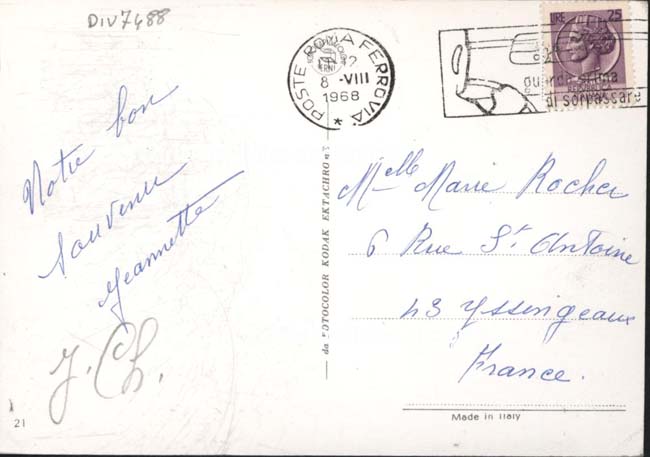 DIV7488
POSTE ROMA FERROVIA
8 -VIII
1968
LIRE 25
guarda prima
di sorpassare
Notre bon
Souvenir
Jeannette
J. Ch.
da FOTOCOLOR KODAK EKTACHROME
Melle Marie Rocher
6 Rue St Antoine
43 Yssingeaux
France.
Made in Italy
21